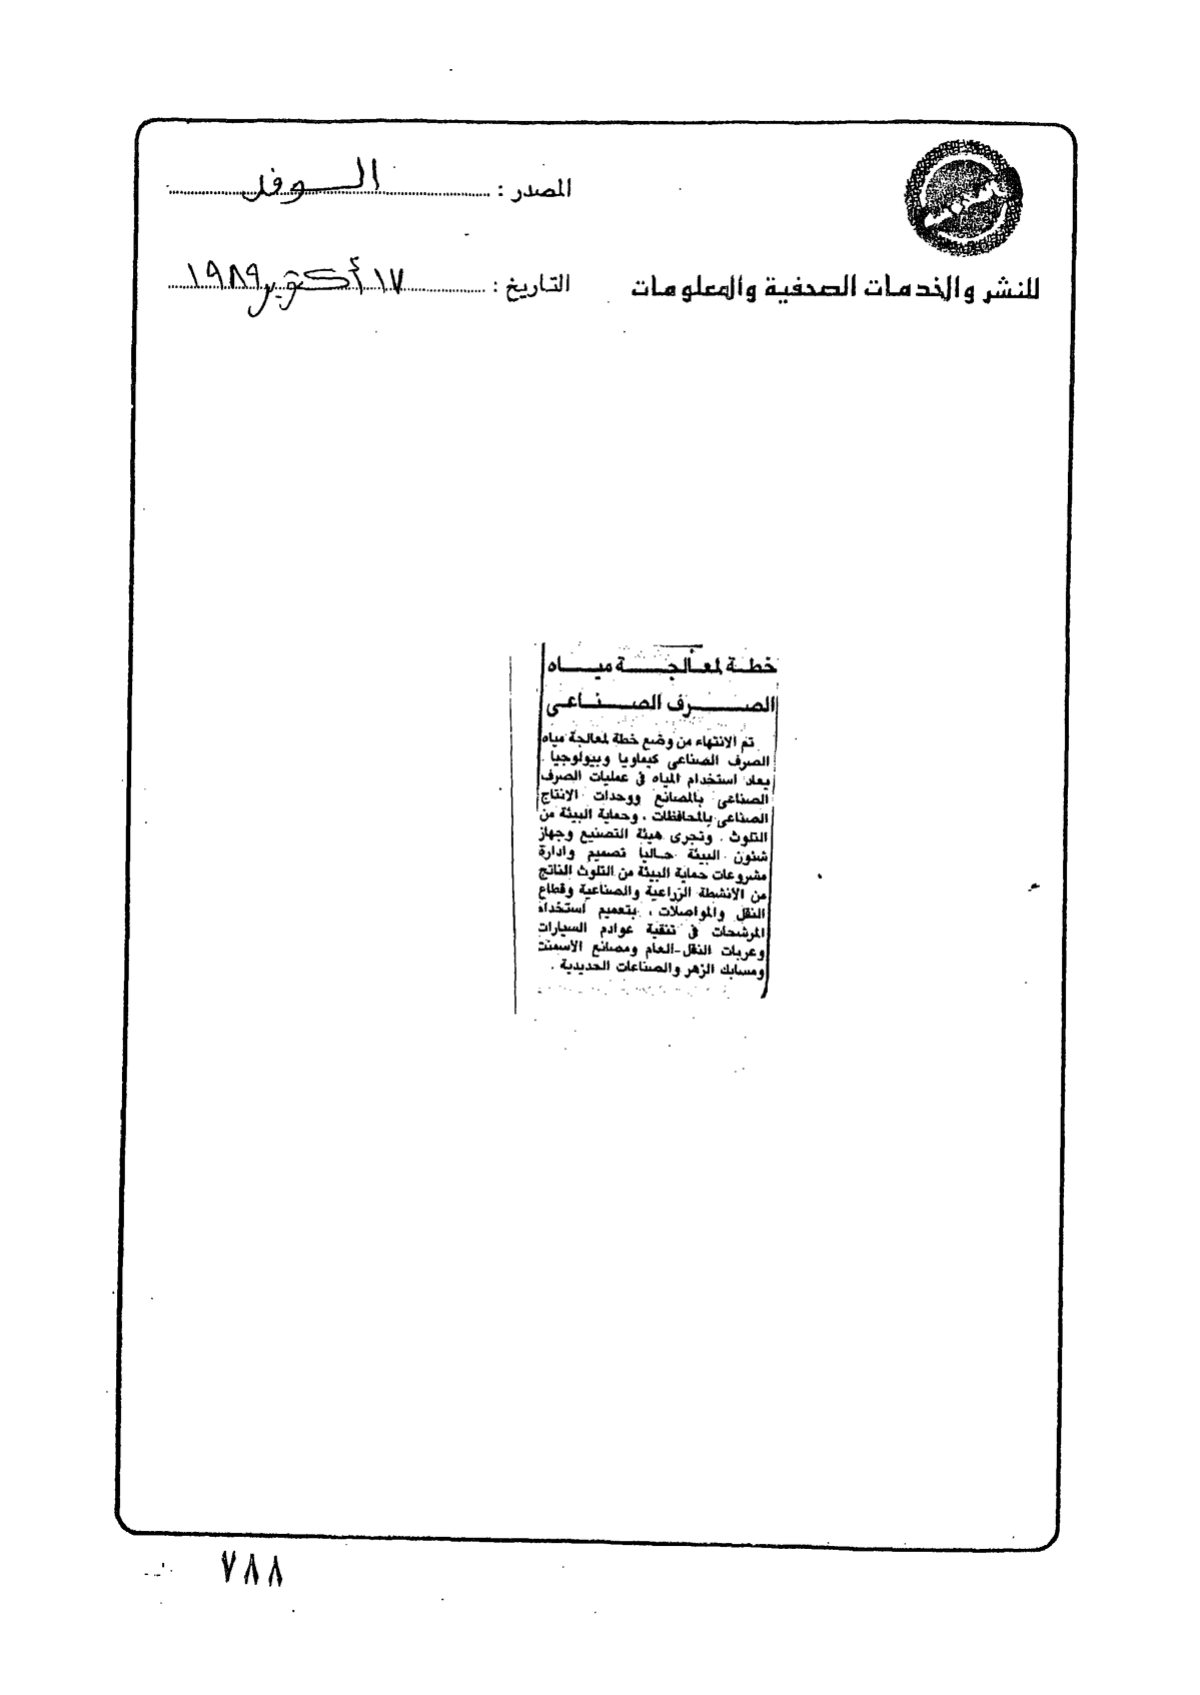 المصدر : الوفد
للنشر والخدمات الصحفية والمعلومات
التاريخ : ١٧ أكتوبر ١٩٨٩
خطة لمعالجة مياه
الصرف الصناعى
تم الانتهاء من وضع خطة لمعالجة مياه
الصرف الصناعى كيماويا وبيولوجيا .
يعاد استخدام المياه فى عمليات الصرف
الصناعى بالمصانع ووحدات الانتاج
الصناعى بالمحافظات ، وحماية البيئة من
التلوث . وتجرى هيئة التصنيع وجهاز
شئون البيئة حاليا تصميم وادارة
مشروعات حماية البيئة من التلوث الناتج
من الانشطة الزراعية والصناعية وقطاع
النقل والمواصلات ، بتعميم استخدام
المرشحات فى تنقية عوادم السيارات
وعربات النقل العام ومصانع الأسمنت
ومسابك الزهر والصناعات الحديدية .
٧٨٨